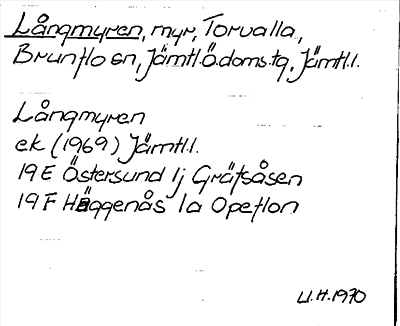 Långmyren, myr, Torvalla,
Brunflo sn, Jämtl.Ö.doms.tg, Jämtl.l.
Långmyren
ek (1969) Jämtl.l.
19E Östersund 1j Gräfsåsen
19F Häggenås 1a Opeflon
U.H.1970